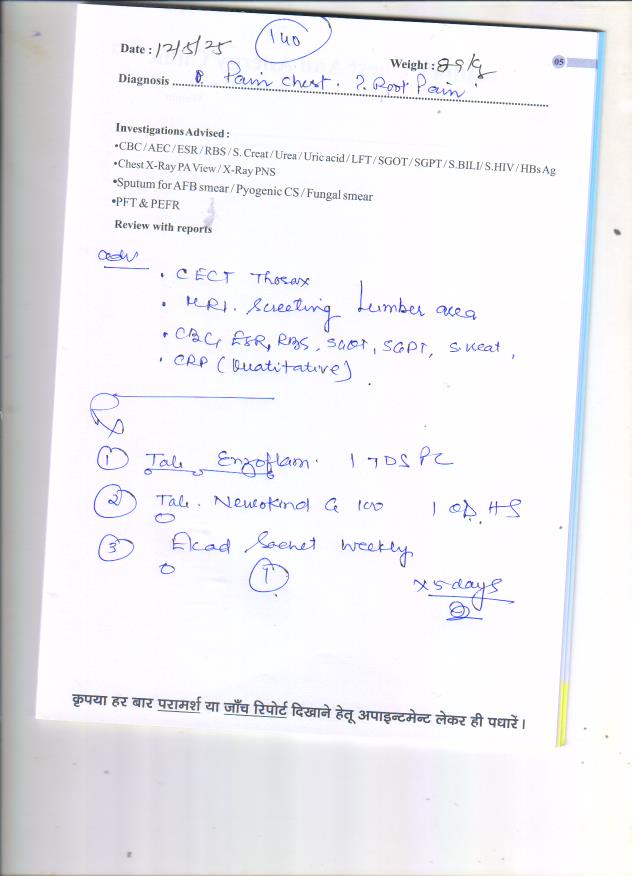 140
Date : 12/5/25
Weight : 89kg
05
Diagnosis Pain chest. ?. Root Pain
Investigations Advised :
•CBC / AEC / ESR / RBS / S. Creat / Urea / Uric acid / LFT / SGOT / SGPT / S.BILI / S.HIV / HBs Ag
•Chest X-Ray PA View / X-Ray PNS
•Sputum for AFB smear / Pyogenic CS / Fungal smear
•PFT & PEFR
Review with reports
adv
• CECT Thorax
• MRI. Screeting Lumber area
• CBC, ESR, RBS, SGOT, SGPT, S.creat,
• CRP (Quatitative)
Rx
① Tab Enzoflam. 1 TDS PC
② Tab. Neurokind G 100 1 OD. HS
③ Sachet Weekly
①
x 5 days
कृपया हर बार परामर्श या जाँच रिपोर्ट दिखाने हेतू अपाइन्टमेन्ट लेकर ही पधारें।